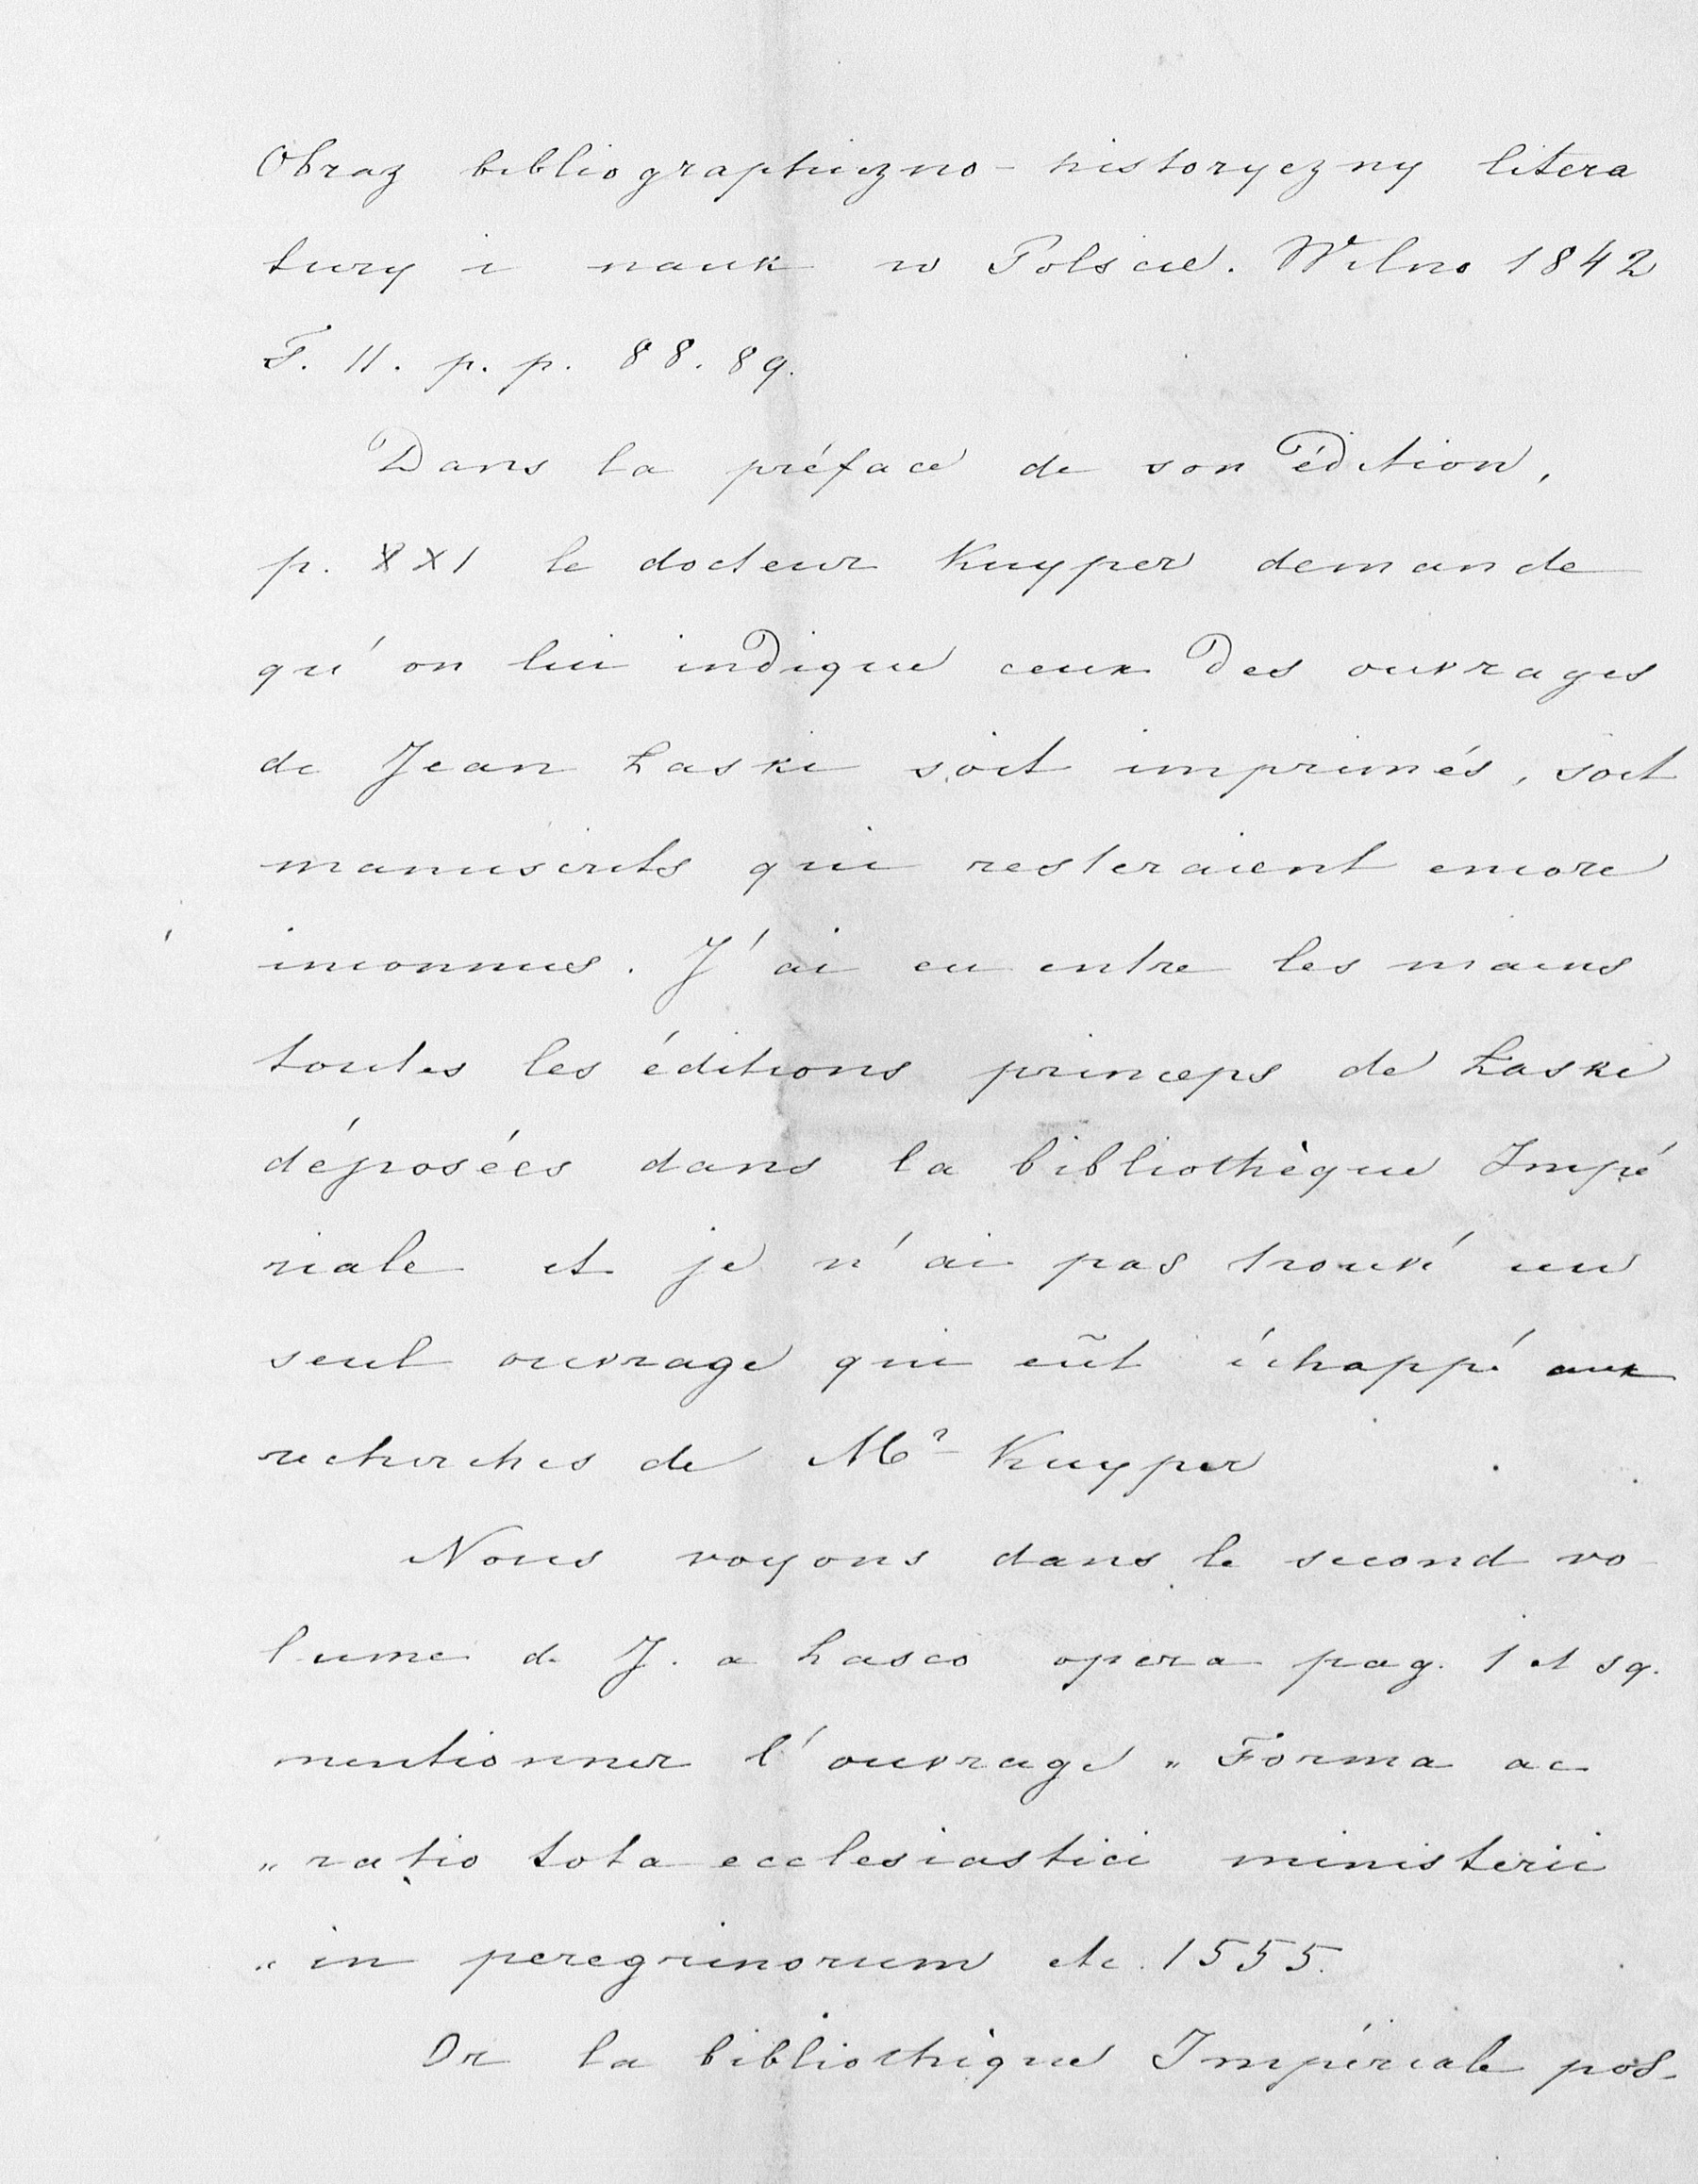 Obraz bibliographiczno-historyczny litera
tury i nauk w Polsce. Wilno 1842
T. II. p. p. 88. 89.
Dans la préface de son édition,
p. XXI le docteur Kuyper demande
qu'on lui indique ceux des ouvrages
de Jean Łaski soit imprimés, soit
manuscrits qui resteraient encore
inconnues. J'ai eu entre les mains
toutes les éditions princeps de Łaski
déposées dans la bibliothèque Impé
riale et je n'ai pas trouvé un
seul ouvrage qui eût échappé aux
recherches de Mr Kuyper
Nous voyons dans le second vo
lume de J. a Lasco opera pag. 1 et sq.
mentionner l'ouvrage „Forma ac
„ratio tota ecclesiastici ministerii
„in peregrinorum etc. 1555.
Or la bibliothèque Impériale pos-